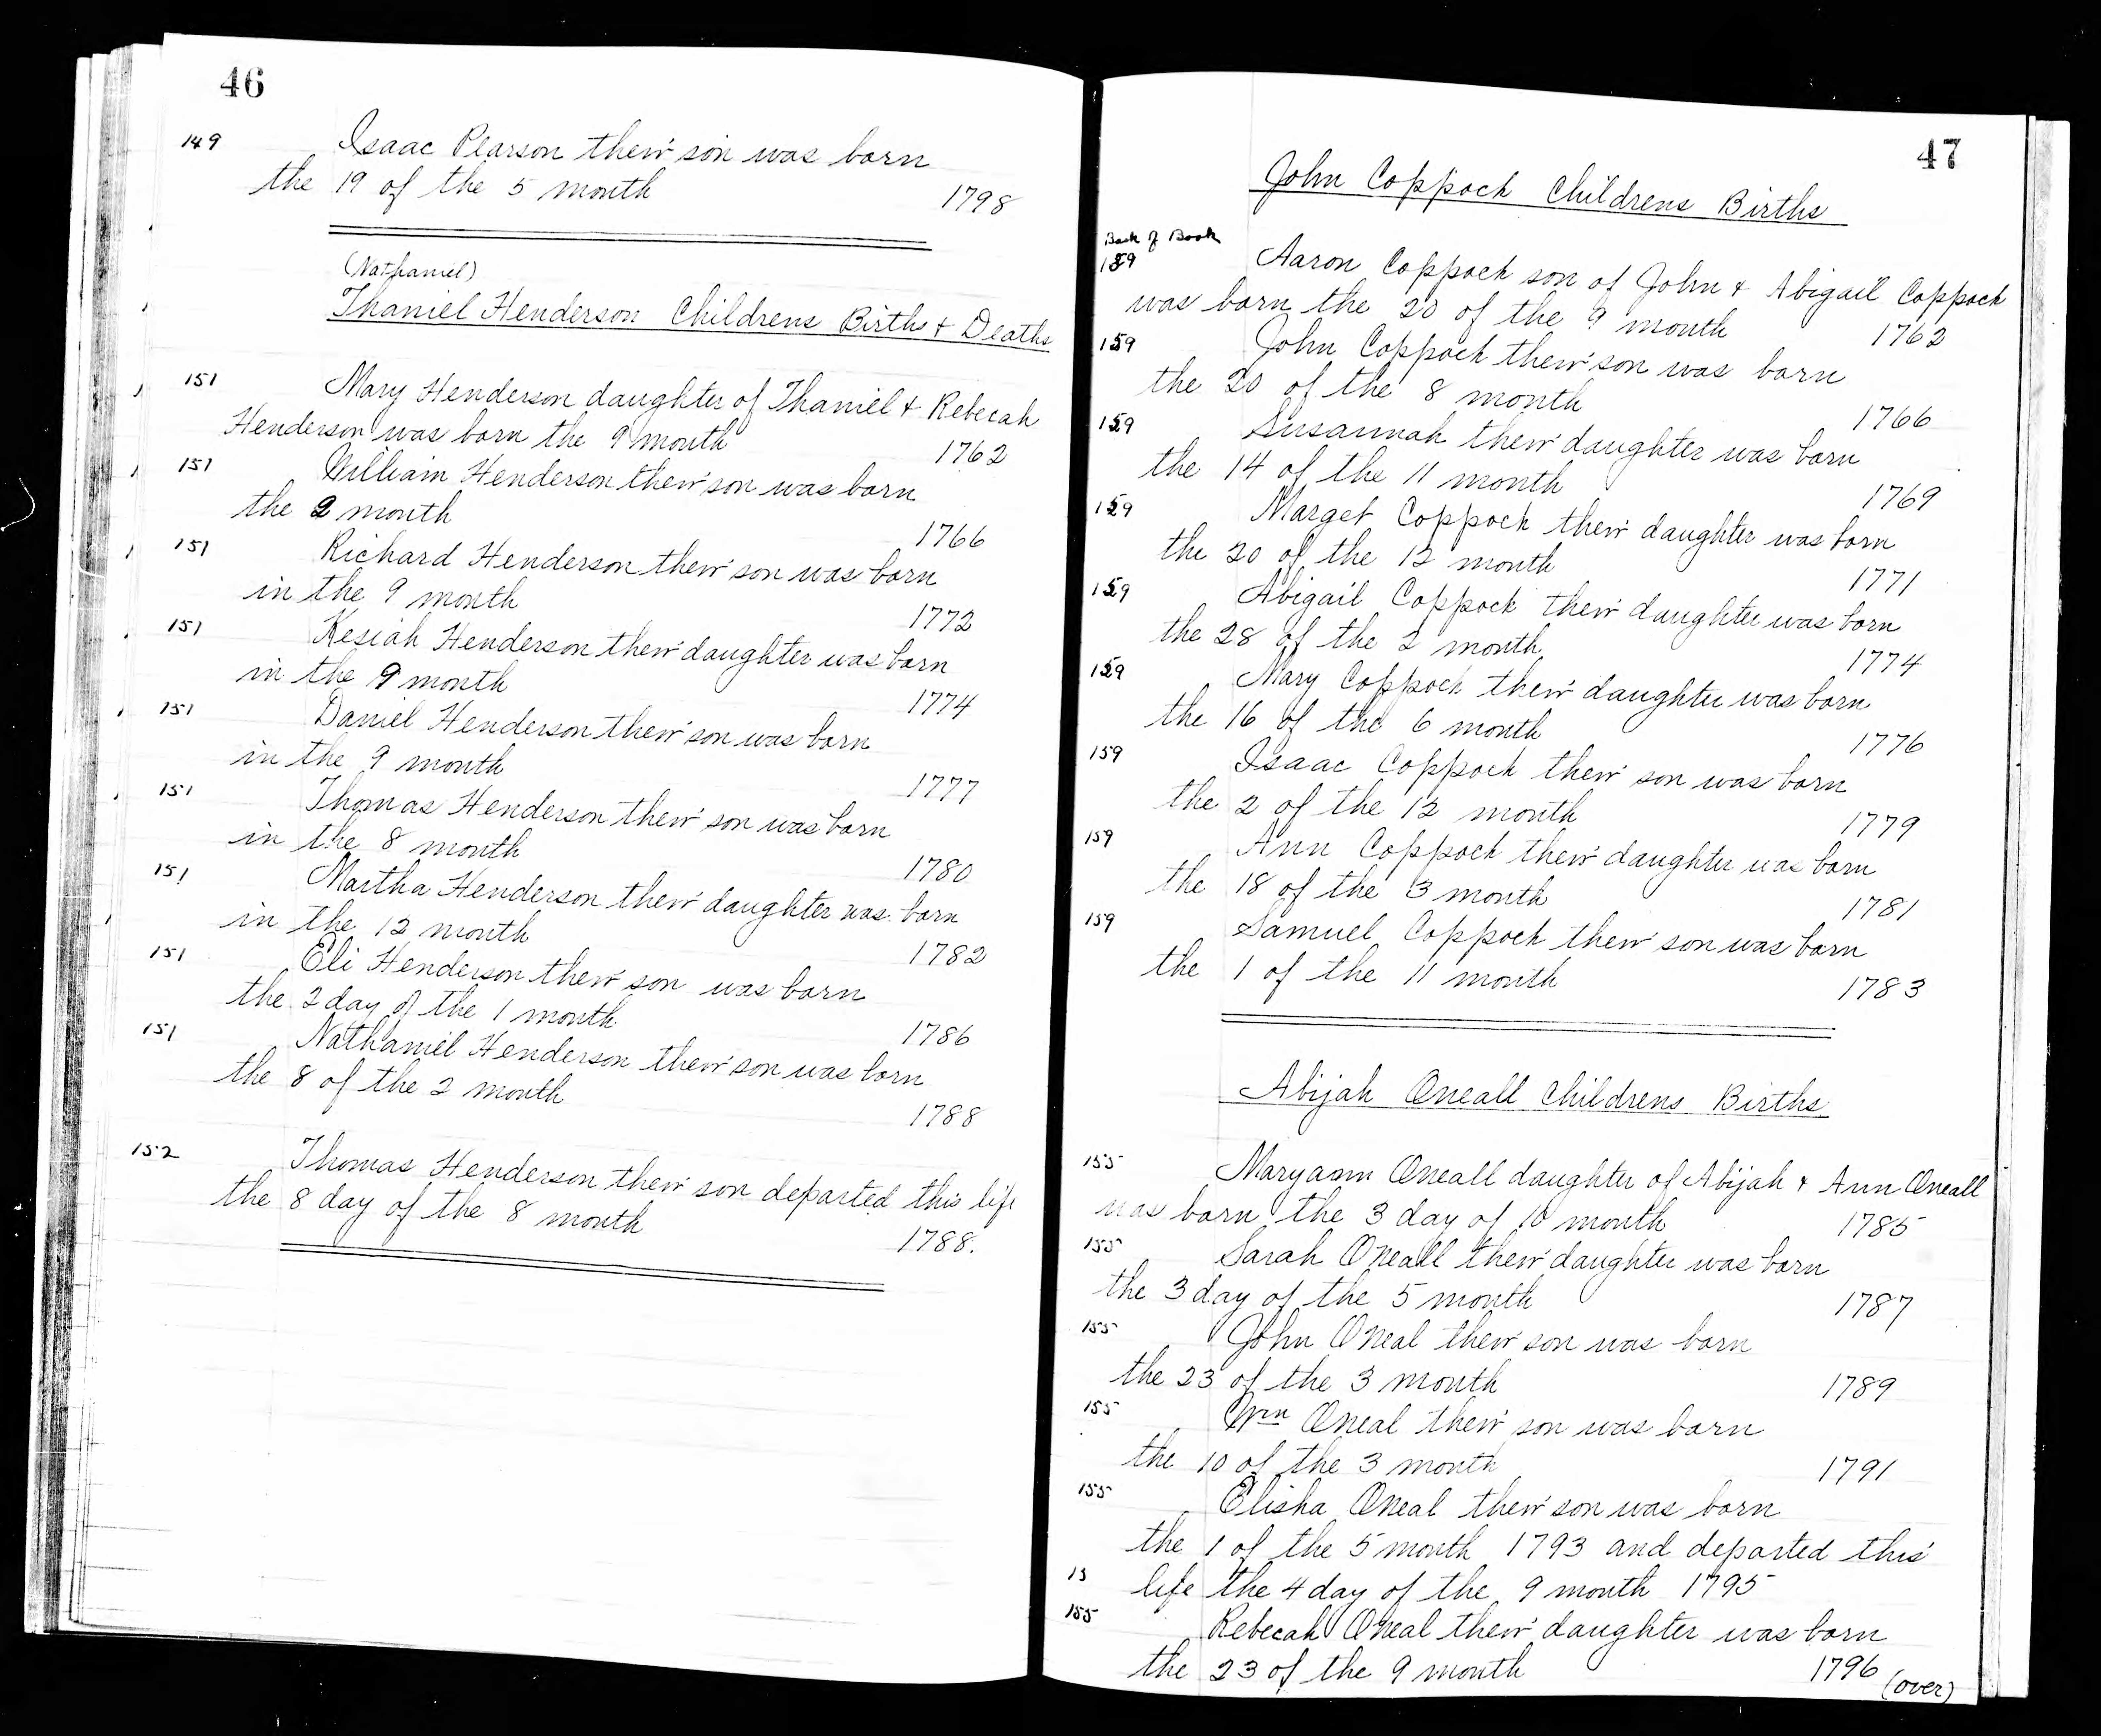 46
149 Isaac Pearson their son was born
the 19 of the 5 month 1798
(Nathaniel)
Thaniel Henderson Childrens Births & Deaths
151 Mary Henderson daughter of Thaniel & Rebecah
Henderson was born the 9 month 1762
151 William Henderson their son was born
the 2 month 1766
151 Richard Henderson their son was born
in the 9 month 1772
151 Kesiah Henderson their daughter was born
in the 9 month 1774
151 Daniel Henderson their son was born
in the 9 month 1777
151 Thomas Henderson their son was born
in the 8 month 1780
151 Martha Henderson their daughter was born
in the 12 month 1782
151 Eli Henderson their son was born
the 2 day of the 1 month 1786
151 Nathaniel Henderson their son was born
the 8 of the 2 month 1788
152 Thomas Henderson their son departed this life
the 8 day of the 8 month 1788.
47
John Coppock Childrens Births
Back of Book
159 Aaron Coppock son of John & Abigail Coppock
was born the 20 of the 9 month 1762
159 John Coppock their son was born
the 20 of the 8 month 1766
159 Susannah their daughter was born
the 14 of the 11 month 1769
159 Marget Coppock their daughter was born
the 20 of the 12 month 1771
159 Abigail Coppock their daughter was born
the 28 of the 2 month 1774
159 Mary Coppock their daughter was born
the 16 of the 6 month 1776
159 Isaac Coppock their son was born
the 2 of the 12 month 1779
159 Ann Coppock their daughter was born
the 18 of the 3 month 1781
159 Samuel Coppock their son was born
the 1 of the 11 month 1783
Abijah Oneall Childrens Births
155 Maryann Oneall daughter of Abijah & Ann Oneall
was born the 3 day of 10 month 1785
155 Sarah Oneall their daughter was born
the 3 day of the 5 month 1787
155 John Oneal their son was born
the 23 of the 3 month 1789
155 Wm Oneal their son was born
the 10 of the 3 month 1791
155 Elisha Oneal their son was born
the 1 of the 5 month 1793 and departed this
15 life the 4 day of the 9 month 1795
155 Rebecah Oneal their daughter was born
the 23 of the 9 month 1796
(over)